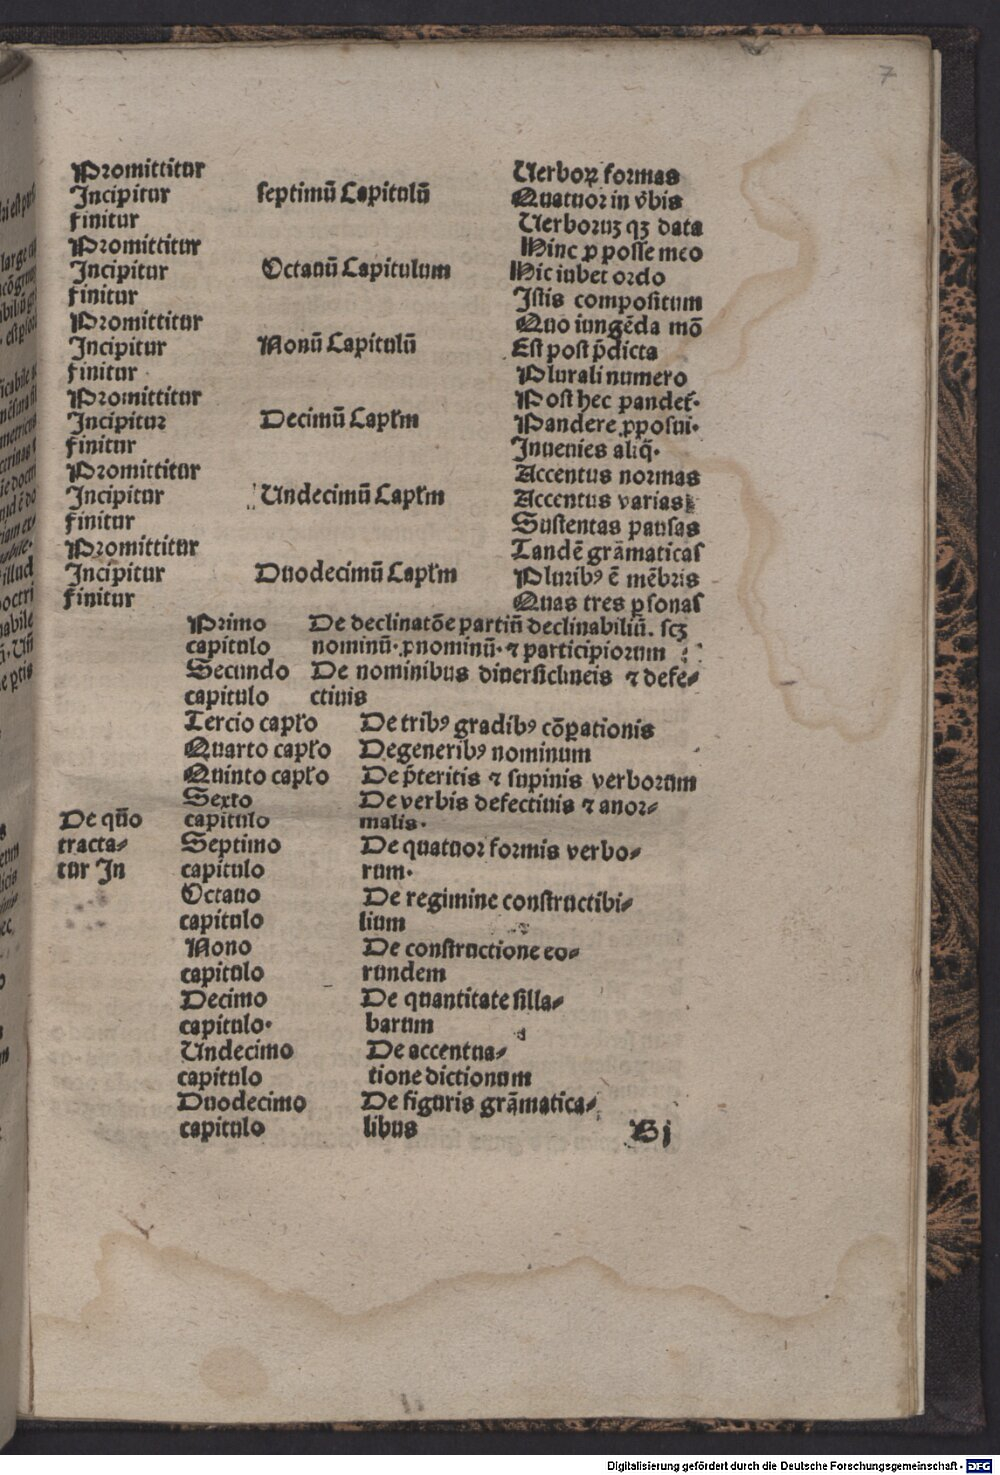 7
Promittitur Verboꝝ formas
Incipitur septimū Capitulū Quatuor in v̄bis
finitur Verboruꝫ qꝫ data
Promittitur Hinc ꝓ posse meo
Incipitur Octauū Capitulum Hic iubet ordo
finitur Istis compositum
Promittitur Quo iungēda mō
Incipitur Nonū Capitulū Est post p̄dicta
finitur Plurali numero
Promittitur Post hec pandet᷒.
Incipitur Decimū Capl̓m Pandere ꝓposui.
finitur Inuenies aliq̄.
Promittitur Accentus normas
Incipitur Undecimū Capl̓m Accentus varias
finitur Sustentas pausas
Promittitur Tandē grāmaticas
Incipitur Duodecimū Capl̓m Pluribꝰ ē mēbris
finitur Quas tres ꝑsonas
Primo De declinatōe partiū declinabiliū. scꝫ
capitulo nominū. ꝓnominū. ⁊ participiorum
Secundo De nominibus diuersiclineis ⁊ defe⸗
capitulo ctiuis
Tercio capl̓o De tribꝰ gradibꝰ cōꝑationis
Quarto capl̓o De generibꝰ nominum
Quinto capl̓o De p̄teritis ⁊ supinis verborum
Sexto De verbis defectiuis ⁊ anor⸗
De qūo capitulo malis.
tracta⸗ Septimo De quatuor formis verbo⸗
tur In capitulo rum.
Octauo De regimine constructibi⸗
capitulo lium
Nono De constructione eo⸗
capitulo rundem
Decimo De quantitate silla⸗
capitulo. barum
Undecimo De accentua⸗
capitulo tione dictionum
Duodecimo De figuris grāmatica⸗
capitulo libus
Bj
Digitalisierung gefördert durch die Deutsche Forschungsgemeinschaft - DFG